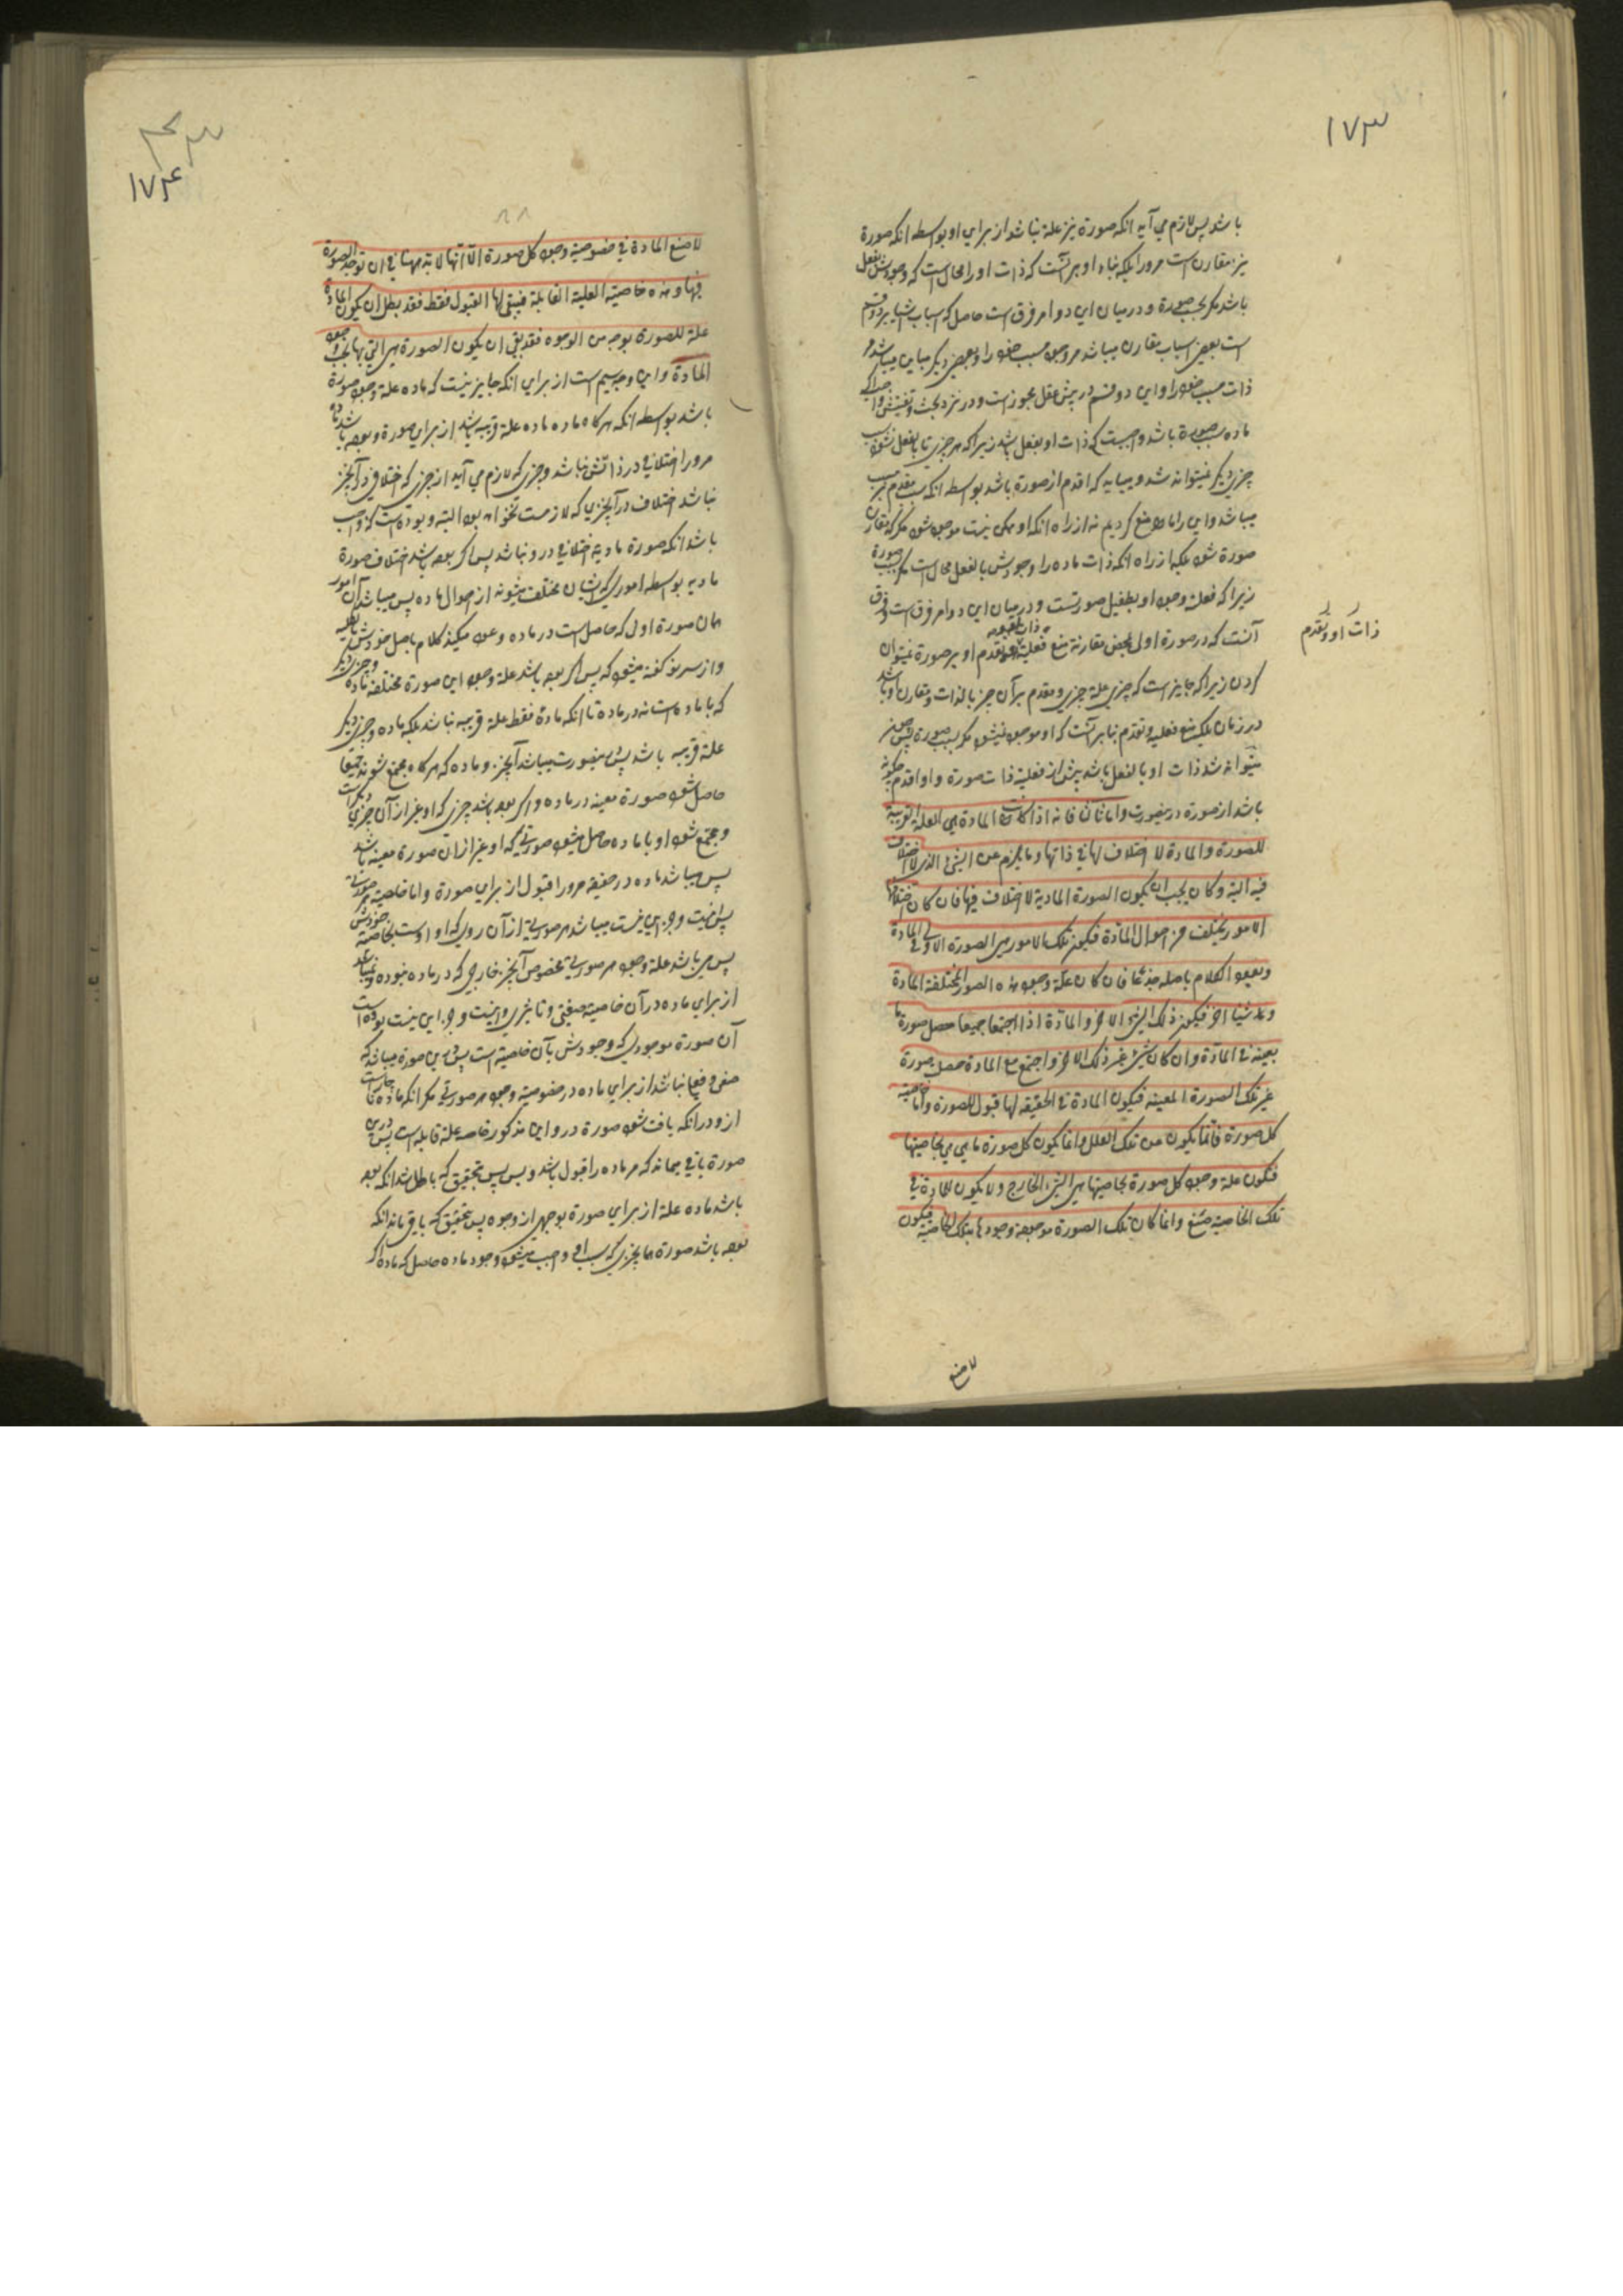 ۱۷۳
باشد پس لازم می آید انکه صورة نیز علة نباشد از برای او بواسطه انکه صورة
نیز مقارن است مرورا بلکه بناء او بر آنست که ذات او را محال است که وجودش بفعل
باشد مکر بسبب صورة و درمیان این دو امر فرق است حاصل که اسباب اشیا بر دو قسم
است بعضی اسباب مقارن میباشد مر وجود مسبب خود را و بعضی دیکر مباین میباشد مر
ذات مسبب خود را و این دو قسم در پیش عقل مجوز است و در نزد بحث و تفتیش واجب اکر
ماده سبب صورة باشد واجبست که ذات او بفعل باشد زیرا که هر چیزی تا بالفعل نشود سبب
چیزی دیکر نمیتواند شد و میباید که اقدم از صورة باشد بواسطه انکه سبب مقدم بر مسبب
میباشد و این را ما منع کردیم نه از راه انکه او ممکن نیست موجود شود مکر که مقارن
صورة شود بلکه از راه انکه ذات ماده را وجودش بالفعل محال است مکر بسبب صورة
زیرا که فعلیة وجود او بطفیل صورتست و درمیان این دو امر فرق است و فرق
آنست که در صورة اولی محض مقارنة منع فعلیة و تقدم او بر صورة نمیتوان
ذات او و تقدم
کردن زیرا که جایز است که چیزی علة چیزی و مقدم بر آن چیز بالذات و مقارن او باشد
در زمان بلکه منع فعلیة و تقدم بنابر آنست که او موجود نمیشود مکر بسبب صورة پس
میتواند شد ذات او بالفعل باشد پیش از فعلیة ذات صورة و او اقدم چکونه
باشد از صورة درینصورت و اما ثانیا فانه اذا کانت المادة هی العلة القریبة
للصورة والمادة لا اختلاف لها فی ذاتها وما یلزم عن الشئ الذی لا اختلاف
فیه البتة وکان یجب ان یکون الصورة المادیة لا اختلاف فیها فان کان اختلافها
لامور یختلف من احوال المادة فیکون تلک الامور هی الصورة الاولی فی المادة
ویعود الکلام باصله جذعا فان کان علة وجود هذه الصور المختلفة المادة
وشیئا آخر فیکون ذلک الشئ الاخر والمادة اذا اجتمعا جمیعا حصل صورة ما
بعینه فی المادة وان کان شئ غیر ذلک الاخر واجتمع مع المادة حصل صورة
غیر تلک الصورة المعینه فیکون المادة فی الحقیقه لها قبول للصورة واما خاصیة
کل صورة فانما یکون من تلک العلل وانما یکون کل صورة ما هی هی بخاصیتها
فتکون علة وجود کل صورة بخاصیتها هی الشئ الخارج ولا یکون للمادة فی
تلک الخاصیة صنع وانما کان تلک الصورة موجودة وجودها بتلک الخاصیة فیکون
لا صنع
۱۷۴
لا صنع للمادة فی خصوصیة وجود کل صورة الا انها لا بد منها فی ان توجد الصورة
فیها وهذه خاصیة العلیة القابلة فیبقی لها القبول فقط فقد بطل ان یکون المادة
علة للصورة بوجه من الوجوه فقد بقی ان یکون الصورة هی التی بها یجب وجود
المادة و این وجه سیم است از برای انکه جایز نیست که ماده علة وجود صورة
باشد بواسطه انکه هرکاه ماده علة قریبه باشد از برای صورة و بوده باشد ماده
مرورا اختلافی در ذاتش نباشد و چیزی که لازم می آید از چیزی که اختلافی در آنچیز
نباشد اختلاف در آنچیزی که لازمست نخواهد بود البته و بوده است که واجب
باشد انکه صورة مادیه اختلافی درو نباشد پس اکر بوده باشد اختلاف صورة
مادیه بواسطه اموری که ایشان مختلف میشوند از احوال ماده پس میباشد آن امور
همان صورة اولی که حاصل است در ماده و عود میکند کلام باصل خودش
و از سر نو کفته میشود که پس اکر بوده باشد علة وجود این صورة مختلفه ماده و چیز دیکر
که با ماده است نه در ماده تا انکه ماده فقط علة قریبه نباشد بلکه ماده و چیزی دیکر
علة قریبه باشد پس درینصورت میباشد آنچیز و ماده که هرکاه مجتمع شوند جمیعا
حاصل شود صورة معینه در ماده و اکر بوده باشد چیزی که او غیر از آن چیزی دیکر است
و مجتمع شود او با ماده حاصل میشود صورتی که او غیر از ان صورة معینه باشد
پس میباشد ماده در حقیقه مرورا قبول از برای صورة و اما خاصیة هر صورتی
پس نیست و جز این نیست میباشد هر صورتی از آن روی که او اوست بخاصیة خودش
پس می باشد علة وجود هر صورتی مخصوص آنچیز خارجی که در ماده نبوده و نمیباشد
از برای ماده در آن خاصیة صنعی و تاثیری و نیست و جز این نیست بوده است
آن صورة موجودی که وجودش بآن خاصیة است پس درین صورة میباشد که
صنعی و فعلی نباشد از برای ماده در خصوصیة وجود هر صورتی مکر انکه ماده ناچار است
ازو در انکه یافت شود صورة درو و این مذکور خاصه علة قابله است پس درین
صورة باقی میماند که مر ماده را قبول باشد و بس پس بتحقیق که باطل شد انکه بوده
باشد ماده علة از برای صورة بوجهی از وجوه پس بتحقیق که باقی ماند انکه
بوده باشد صورة همانچیزی که بسبب او واجب میشود وجود ماده حاصل که ماده اکر